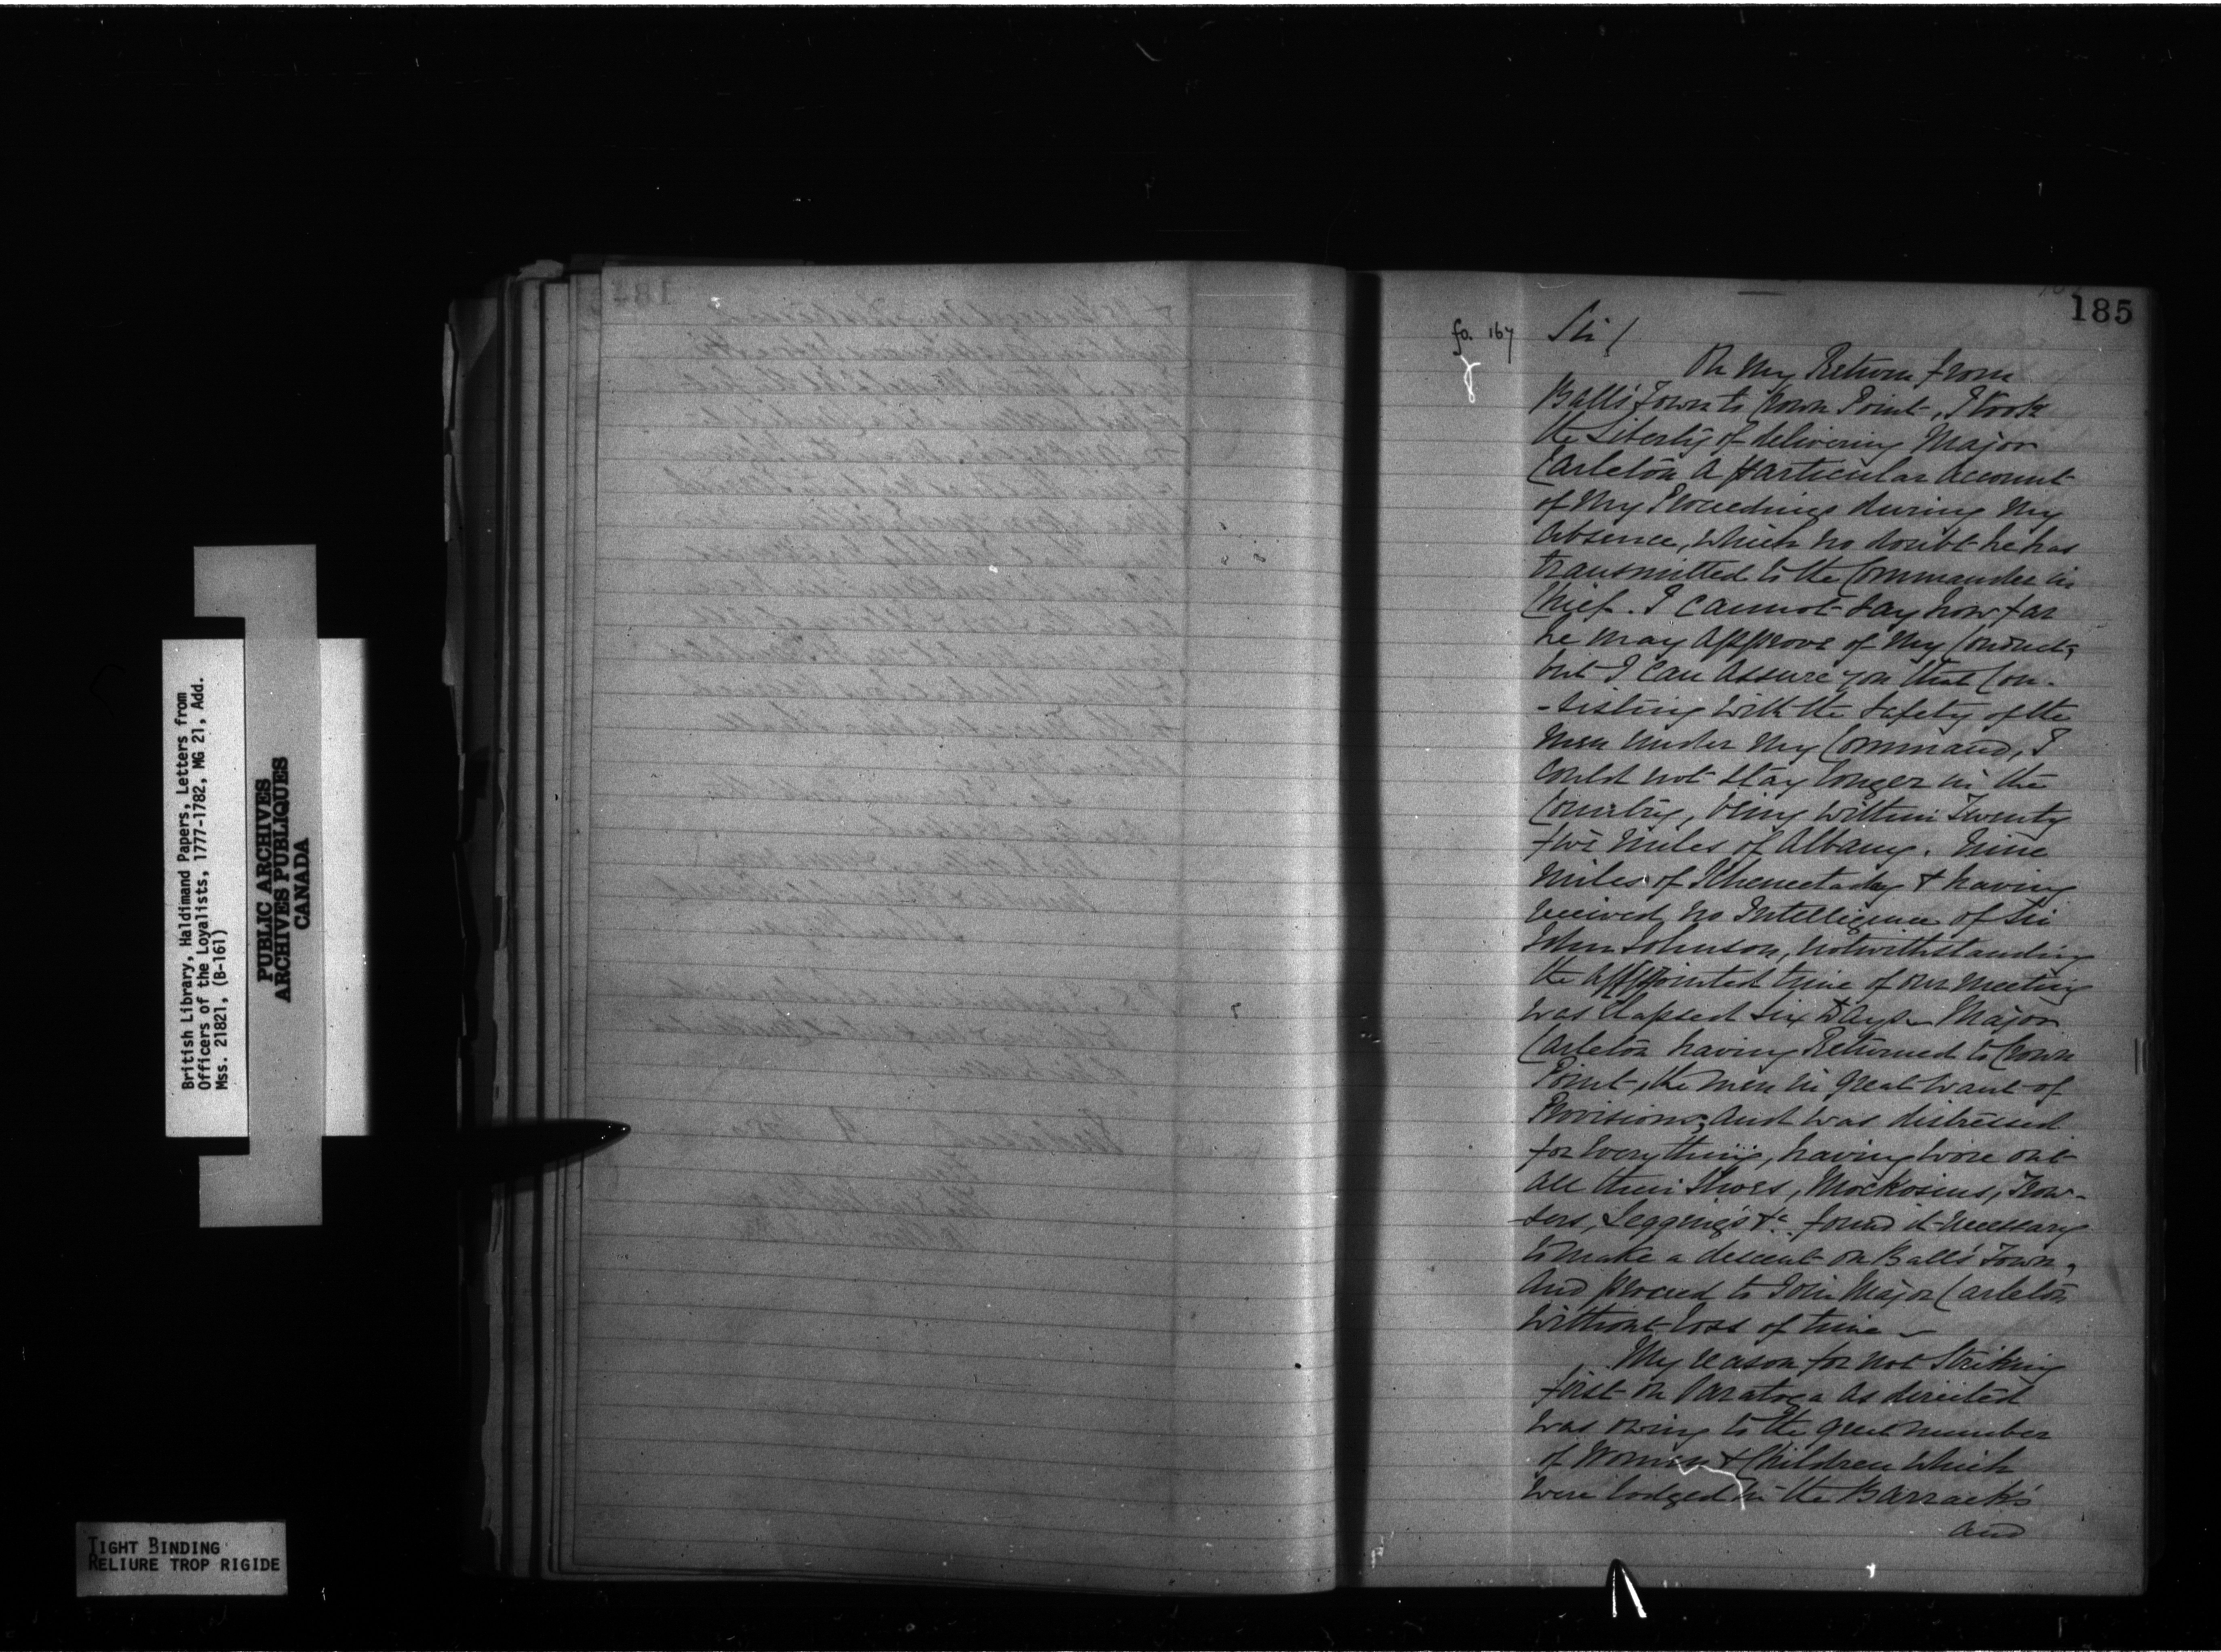 British Library, Haldimand Papers, Letters from
Officers of the Loyalists, 1777-1782, MG 21, Add.
Mss. 21821, (B-161)
PUBLIC ARCHIVES
ARCHIVES PUBLIQUES
CANADA
TIGHT BINDING
RELIURE TROP RIGIDE
185
fo. 167
Sir /
On My Return from
Balls Town to Crown Point, I took
the Liberty of delivering Major
Carleton a particular Account
of My Proceedings during My
Absence, which no doubt he has
transmitted to the Commander in
Chief. I cannot say how far
he may Approve of My Conduct,
but I can Assure you that Con-
-sisting with the Safety of the
Men under My Command, I
could not stay longer in the
Country, being within Twenty
two Miles of Albany. Nine
Miles of Schenectaday & having
received no Intelligence of Sir
John Johnson, notwithstanding
the Appointed time of our Meeting
was Elapsed Six Days. Major
Carleton having Returned to Crown
Point, the Men in great want of
Provisions; And was distressed
for Everything, having wore out
all their Shoes, Mockosins, Trow-
-sers, Leggings &c. found it necessary
to make a descent on Balls Town,
And proceed to Join Major Carleton
without loss of time ~
My reason for not Striking
first on Saratoga as directed
was owing to the great number
of Women & Children which
were lodged in the Barracks
and